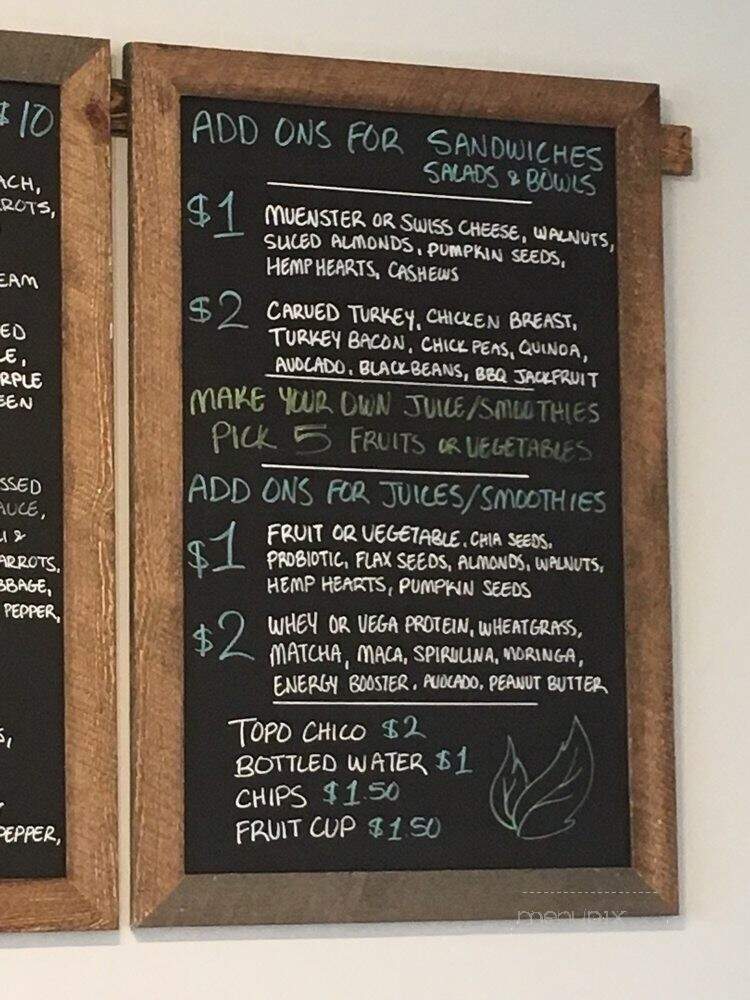 $10
ACH,
ROTS,
EAM
ED
LE,
RPLE
EEN
SSED
AUCE,
LI &
ARROTS,
BBAGE,
PEPPER,
S,
PEPPER,
ADD ONS FOR SANDWICHES
SALADS & BOWLS
$1 MUENSTER OR SWISS CHEESE, WALNUTS,
SLICED ALMONDS, PUMPKIN SEEDS,
HEMP HEARTS, CASHEWS
$2 CARVED TURKEY, CHICKEN BREAST,
TURKEY BACON, CHICK PEAS, QUINOA,
AVOCADO, BLACK BEANS, BBQ JACKFRUIT
MAKE YOUR OWN JUICE/SMOOTHIES
PICK 5 FRUITS OR VEGETABLES
ADD ONS FOR JUICES/SMOOTHIES
$1 FRUIT OR VEGETABLE, CHIA SEEDS,
PROBIOTIC, FLAX SEEDS, ALMONDS, WALNUTS,
HEMP HEARTS, PUMPKIN SEEDS
$2 WHEY OR VEGA PROTEIN, WHEATGRASS,
MATCHA, MACA, SPIRULINA, MORINGA,
ENERGY BOOSTER, AVOCADO, PEANUT BUTTER
TOPO CHICO $2
BOTTLED WATER $1
CHIPS $1.50
FRUIT CUP $1.50
menupix